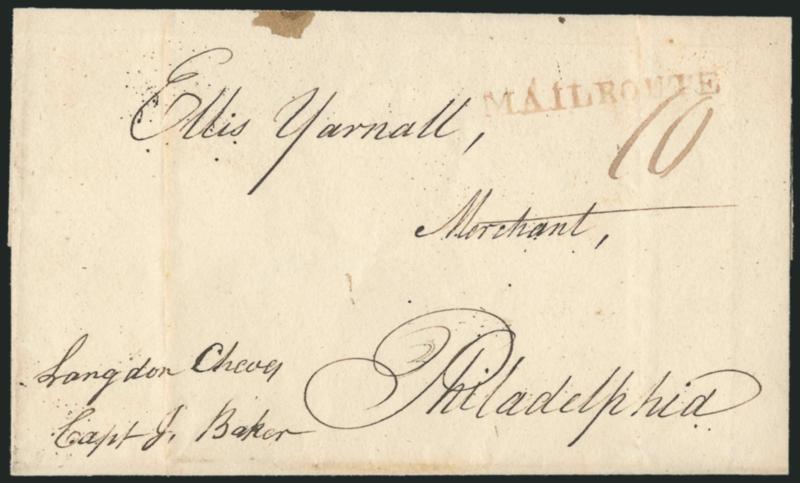 MAIL ROUTE
Ellis Yarnall,
10
Merchant,
Langdon Cheves
Philadelphia
Capt J. Baker